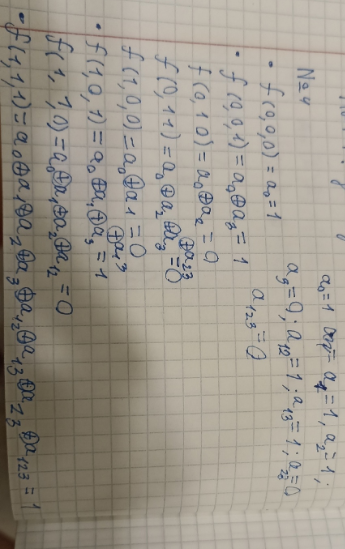 №4
• f(0,0,0)=a₀=1
• f(0,0,1)=a₀⊕a₃=1
f(0,1,0)=a₀⊕a₂=0
f(0,1,1)=a₀⊕a₂⊕a₃⊕a₂₃=0
f(1,0,0)=a₀⊕a₁=0
• f(1,0,1)=a₀⊕a₁⊕a₃⊕a₁₃=1
f(1,1,0)=a₀⊕a₁⊕a₂⊕a₁₂=0
• f(1,1,1)=a₀⊕a₁⊕a₂⊕a₃⊕a₁₂⊕a₁₃⊕a₂₃⊕a₁₂₃=1
a₀=1 a₁=1, a₂=1;
a₃=0; a₁₂=1; a₁₃=1; a₂₃=0
a₁₂₃=0